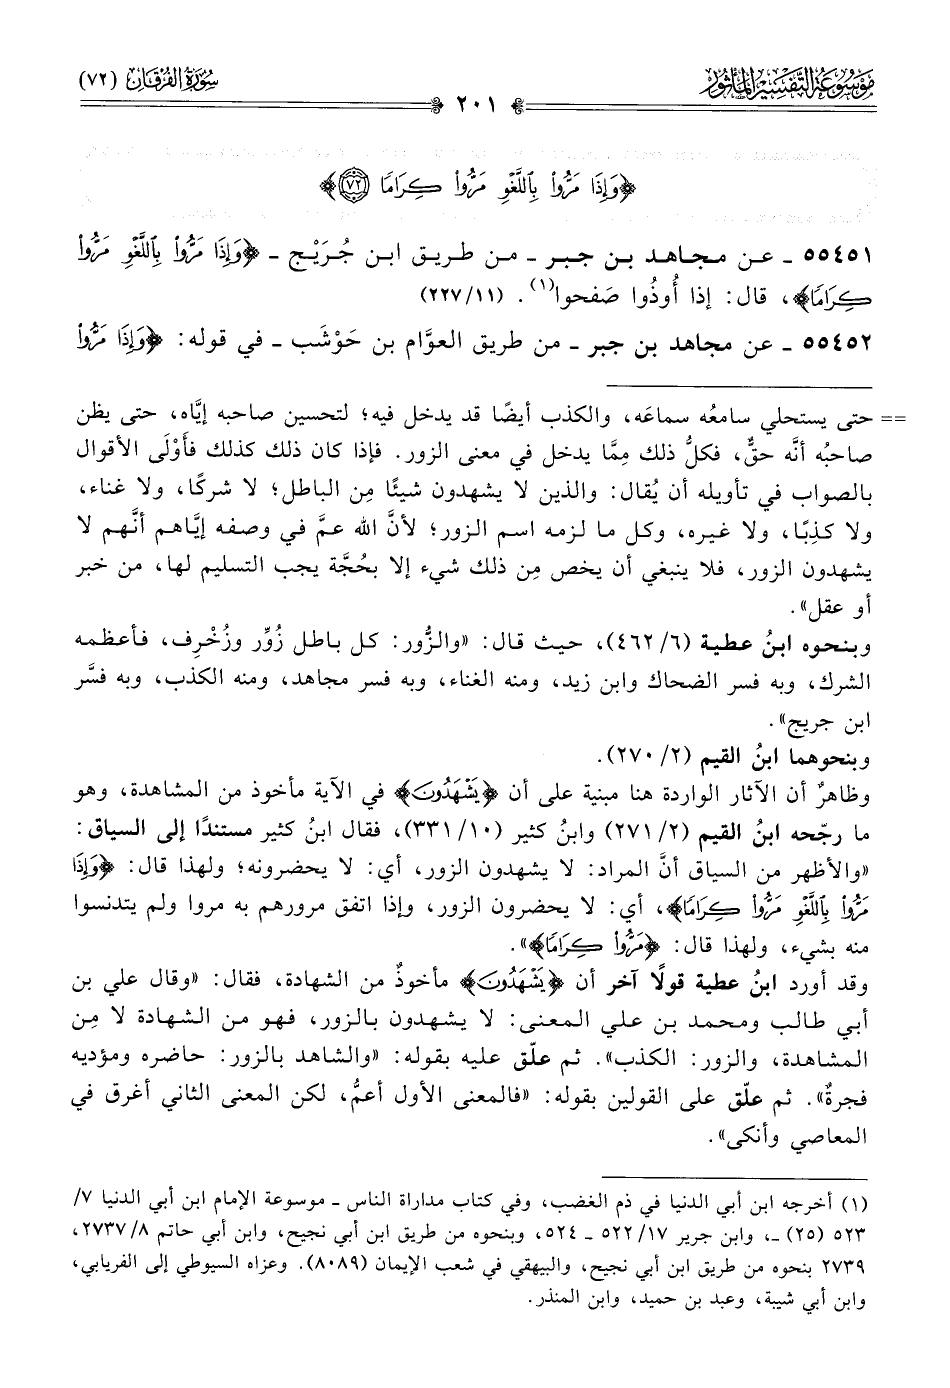 مَوْسُوعَةُ التَّفْسِيرِ المَأْثُور
سُورَةُ الفُرْقَان (٧٢)
٢٠١
﴿وَإِذَا مَرُّوا۟ بِٱللَّغْوِ مَرُّوا۟ كِرَامًا ٧٢﴾
٥٥٤٥١ ـ عن مجاهد بن جبر ـ من طريق ابن جُرَيْج ـ ﴿وَإِذَا مَرُّوا۟ بِٱللَّغْوِ مَرُّوا۟
كِرَامًا﴾، قال: إذا أُوذُوا صَفحوا(١). (١١/ ٢٢٧)
٥٥٤٥٢ ـ عن مجاهد بن جبر ـ من طريق العوَّام بن حَوْشَب ـ في قوله: ﴿وَإِذَا مَرُّوا۟
== حتى يستحلي سامعُه سماعَه، والكذب أيضًا قد يدخل فيه؛ لتحسين صاحبه إيَّاه، حتى يظن
صاحبُه أنَّه حقٌّ، فكلُّ ذلك مِمَّا يدخل في معنى الزور. فإذا كان ذلك كذلك فأَوْلَى الأقوال
بالصواب في تأويله أن يُقال: والذين لا يشهدون شيئًا مِن الباطل؛ لا شركًا، ولا غناء،
ولا كذِبًا، ولا غيره، وكل ما لزمه اسم الزور؛ لأنَّ الله عمَّ في وصفه إيَّاهم أنَّهم لا
يشهدون الزور، فلا ينبغي أن يخص مِن ذلك شيء إلا بحُجَّة يجب التسليم لها، من خبر
أو عقل».
وبنحوه ابنُ عطية (٦/ ٤٦٢)، حيث قال: «والزُّور: كل باطل زُوِّر وزُخْرِف، فأعظمه
الشرك، وبه فسر الضحاك وابن زيد، ومنه الغناء، وبه فسر مجاهد، ومنه الكذب، وبه فسَّر
ابن جريج».
وبنحوهما ابنُ القيم (٢/ ٢٧٠).
وظاهرٌ أن الآثار الواردة هنا مبنية على أن ﴿يَشْهَدُونَ﴾ في الآية مأخوذ من المشاهدة، وهو
ما رجّحه ابنُ القيم (٢/ ٢٧١) وابنُ كثير (١٠/ ٣٣١)، فقال ابنُ كثير مستندًا إلى السياق:
«والأظهر من السياق أنَّ المراد: لا يشهدون الزور، أي: لا يحضرونه؛ ولهذا قال: ﴿وَإِذَا
مَرُّوا۟ بِٱللَّغْوِ مَرُّوا۟ كِرَامًا﴾، أي: لا يحضرون الزور، وإذا اتفق مرورهم به مروا ولم يتدنسوا
منه بشيء، ولهذا قال: ﴿مَرُّوا۟ كِرَامًا﴾».
وقد أورد ابنُ عطية قولًا آخر أن ﴿يَشْهَدُونَ﴾ مأخوذٌ من الشهادة، فقال: «وقال علي بن
أبي طالب ومحمد بن علي المعنى: لا يشهدون بالزور، فهو من الشهادة لا مِن
المشاهدة، والزور: الكذب». ثم علّق عليه بقوله: «والشاهد بالزور: حاضره ومؤديه
فجرةٌ». ثم علّق على القولين بقوله: «فالمعنى الأول أعمُّ، لكن المعنى الثاني أغرق في
المعاصي وأنكى».
(١) أخرجه ابن أبي الدنيا في ذم الغضب، وفي كتاب مداراة الناس ـ موسوعة الإمام ابن أبي الدنيا ٧/
٥٢٣ (٢٥) ـ، وابن جرير ١٧/ ٥٢٢ ـ ٥٢٤، وبنحوه من طريق ابن أبي نجيح، وابن أبي حاتم ٨/ ٢٧٣٧،
٢٧٣٩ بنحوه من طريق ابن أبي نجيح، والبيهقي في شعب الإيمان (٨٠٨٩). وعزاه السيوطي إلى الفريابي،
وابن أبي شيبة، وعبد بن حميد، وابن المنذر.